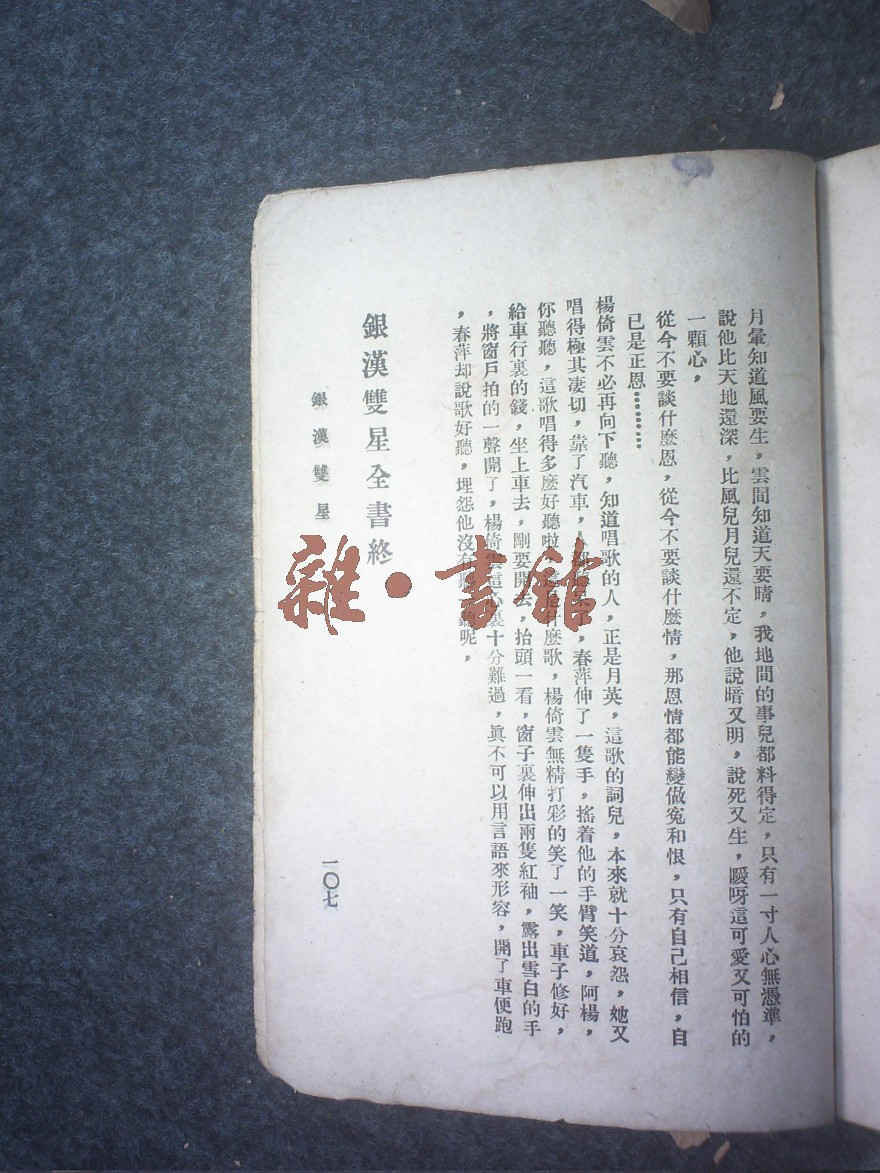 月暈知道風要生，雲間知道天要晴，我地間的事兒都料得定，只有一寸人心無憑準，
說他比天地還深，比風兒月兒還不定，他說暗又明，說死又生，噯呀這可愛又可怕的
一顆心，
從今不要談什麼恩，從今不要談什麼情，那恩情都能變做寃和恨，只有自己相信，自
已是正恩………
楊倚雲不必再向下聽，知道唱歌的人，正是月英，這歌的詞兒，本來就十分哀怨，她又
唱得極其凄切，靠了汽車，人都了，春萍伸了一隻手，搖着他的手臂笑道，阿楊，
你聽聽，這歌唱得多麼好聽啦，什麼歌，楊倚雲無精打彩的笑了一笑，車子修好，
給車行裏的錢，坐上車去，剛要開去，抬頭一看，窗子裏伸出兩隻紅袖，露出雪白的手
，將窗戶拍的一聲開了，楊倚雲這心裏十分難過，眞不可以用言語來形容，開了車便跑
，春萍却說歌好聽，埋怨他沒有呢，
銀漢雙星全書終
銀漢雙星
一〇七
雜·書館